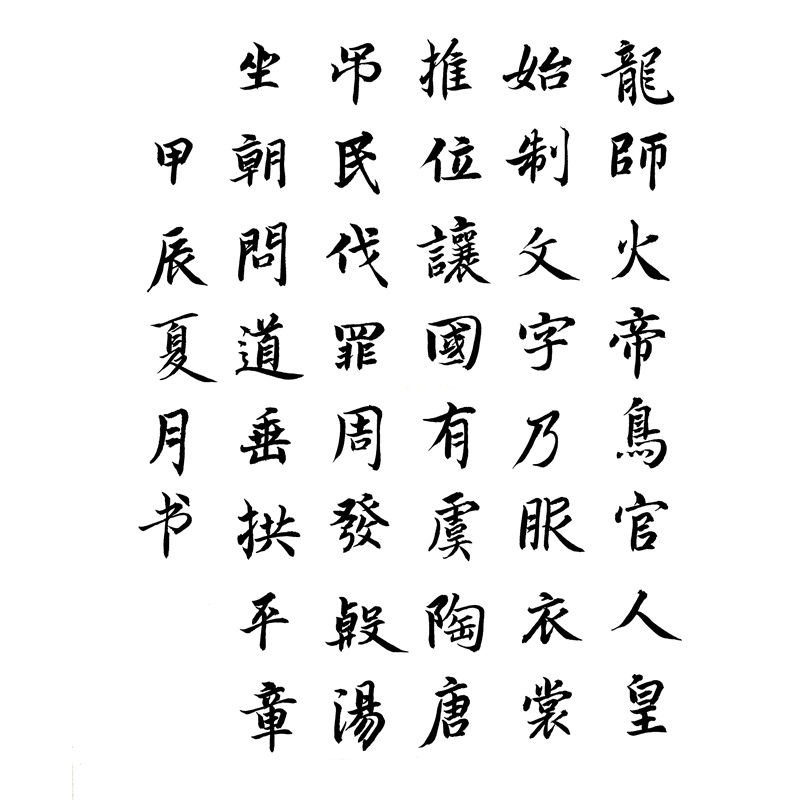 龍師火帝鳥官人皇
始制文字乃服衣裳
推位讓國有虞陶唐
吊民伐罪周發殷湯
坐朝問道垂拱平章
甲辰夏月书